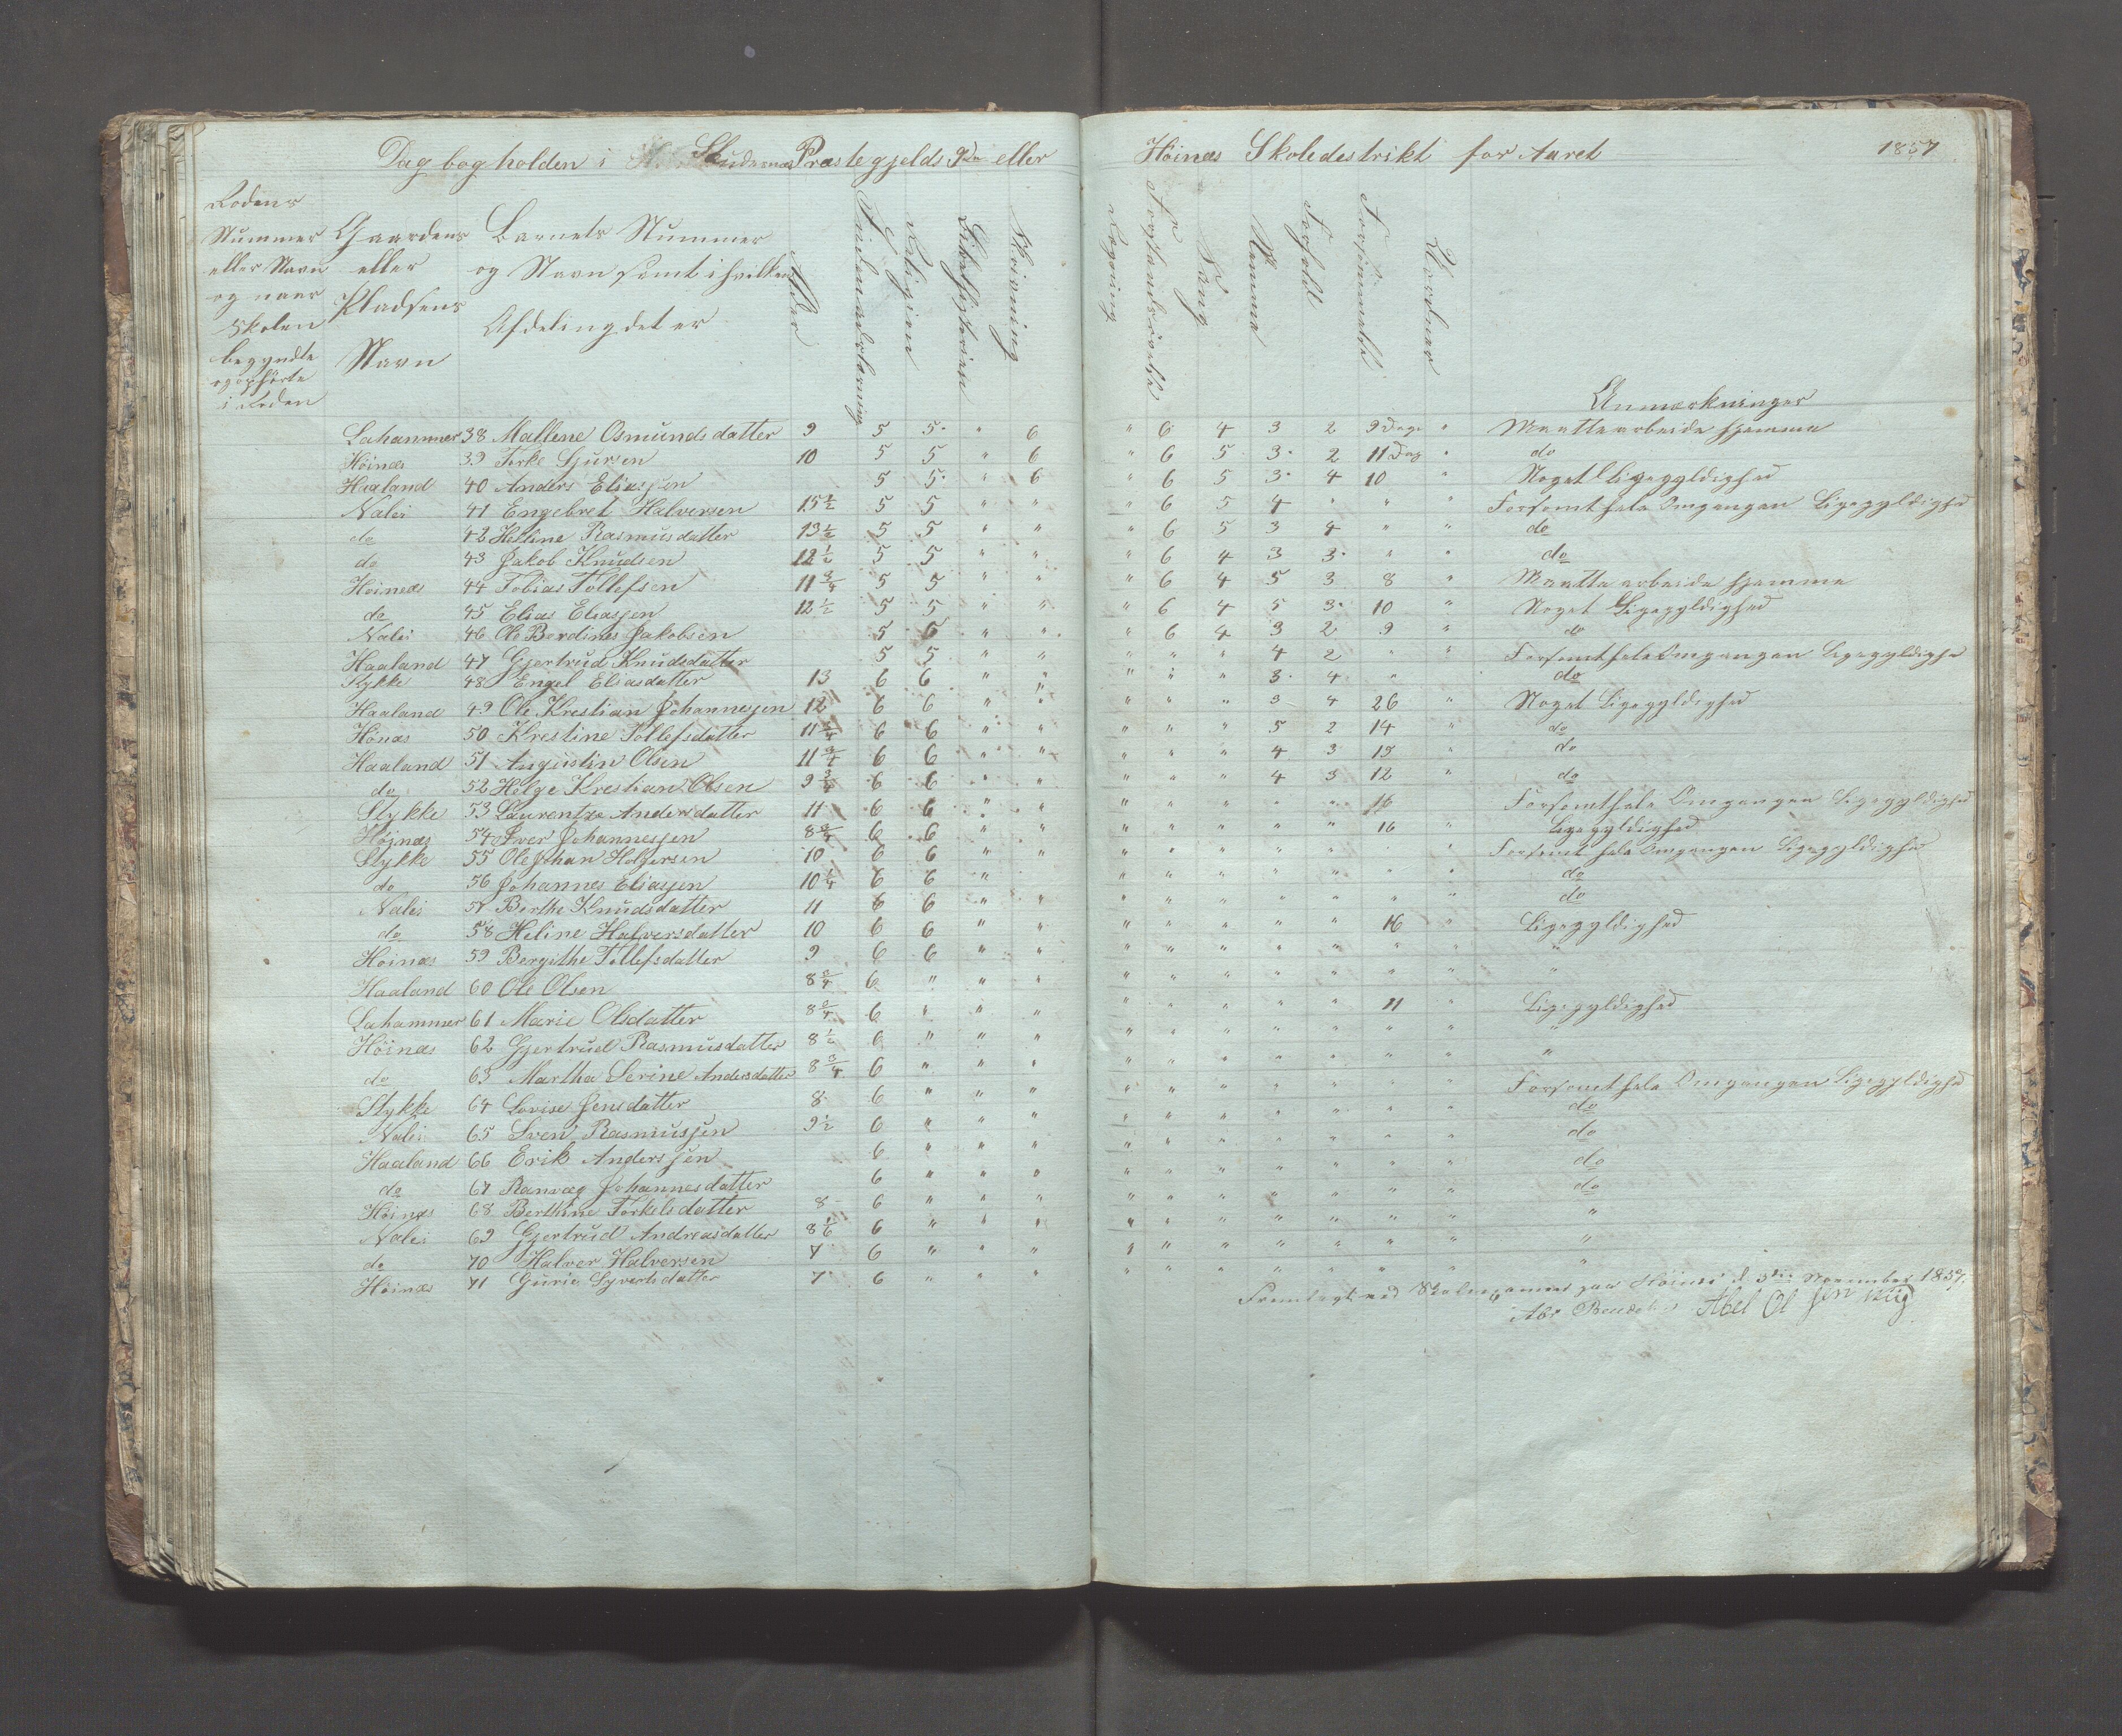 Dagbog holden i Skudenæs Præstegjelds 9de eller Höinæs Skoledestrikt for Aaret 1857
Rodens Nummer eller Navn og naar Skolen begyndte og ophörte i Roden
Gaardens eller Pladsens Navn
Barnets Nummer og Navn samt i hvilken Afdeling det er
Alder
Indenadslæsning
Religion
Bibelhistorien
Skrivning
Regning
Forstandsövelse
Sang
Nemme
Forhold
Forsömmelse
Anmærkninger
Lahammer 38 Mallene Osmundsdatter 9 5 5 " 6 " 6 4 3 2 9 Dage " Maatte arbeide hjemme
Höinæs 39 Torke Sjursen 10 5 5 " 6 " 6 5 3 2 11 Dag " do
Haaland 40 Anders Eliassen 5 5 " 6 " 6 5 3 4 10 " Noget Ligegyldighed
Nalei 41 Engebret Halversen 15½ 5 5 " " " 6 5 4 " " " Forsömt hele Omgangen Ligegyldighed
do 42 Helline Rasmusdatter 13½ 5 5 " " " 6 5 3 4 " " do
do 43 Jakob Knudsen 12½ 5 5 " " " 6 4 3 3 " " do
Höineæs 44 Tobias Tollefsen 11¾ 5 5 " " " 6 4 5 3 8 " Maatte arbeide hjemme
do 45 Elias Eliassen 12½ 5 5 " " " 6 4 5 3 10 " Noget Ligegyldighed
Nalei 46 Ole Berdines Jakobsen 5 6 " " " 6 4 3 2 9 " do
Haaland 47 Gjertrud Knudsdatter 5 5 " " " " " 4 2 " " Forsömt hele Omgangen Ligegyldighed
Stykke 48 Engel Eliasdatter 13 6 6 " " " " " 3 4 " do
Haaland 49 Ole Krestian Johannessen 12 6 6 " " " " " 3 4 26 " Noget Ligegyldighed
Hönæs 50 Krestine Tollefsdatter 11¾ 6 6 " " " " " 5 2 14 " do
Haaland 51 Augustin Olsen 11¾ 6 6 " " " " " 4 3 15 " do
do 52 Helge Krestian Olsen 9¾ 6 6 " " " " " 4 3 12 " do
Stykke 53 Laurentze Andersdatter 11 6 6 " " " " " " " 16 Forsömt hele Omgangen Ligegyldighed
Höjnæs 54 Iver Johannessen 8¾ 6 6 " " " " " " " 16 " Ligegyldighed
Stykke 55 Ole Johan Holgersen 10 6 6 " " " " " " " " " Forsömt hele Omgangen Ligegyldighed
do 56 Johannes Eliassen 10¼ 6 6 " " " " " " " " do
Nalei 57 Berthe Knudsdatter 11 6 6 " " " " " " " " " do
do 58 Heline Halversdatter 10 6 6 " " " " " " " 16 " Ligegyldighed
Höinæs 59 Bergithe Tollefsdatter 9 6 6 " " " " " " " " " "
Haaland 60 Ole Olsen 8¾ 6 " " " " " " " " " " "
Lahammer 61 Marie Olsdatter 8¾ 6 " " " " " " " " 11 " Ligegyldighed
Höinæs 62 Gjertrud Rasmusdatter 8½ 6 " " " " " " " " " " "
do 63 Martha Serine Andersdatter 8¾ 6 " " " " " " " " " " Forsömt hele Omgangen Ligegyldighed
Stykke 64 Lovise Jensdatter 8 6 " " " " " " " " " " do
Nalei 65 Sven Rasmussen 9½ 6 " " " " " " " " " " do
Haaland 66 Erik Anderssen 6 " " " " " " " " " " do
do 67 Ranvæg Johannesdatter 6 " " " " " " " " " " do
Höinæs 68 Berthine Torkelsdatter 8 6 " " " " " " " " " " "
Nalei 69 Gjertrud Andreasdatter 8⅙ 6 " " " " " " " " " " "
do 70 Halver Halversen 7 6 " " " " " " " " " " "
Höinæs 71 Gurie Syvertsdatter 7 6 " " "
Fremlagt ved Skolexamen paa Höinæs d. 5te November 1857
Abel Ol sen